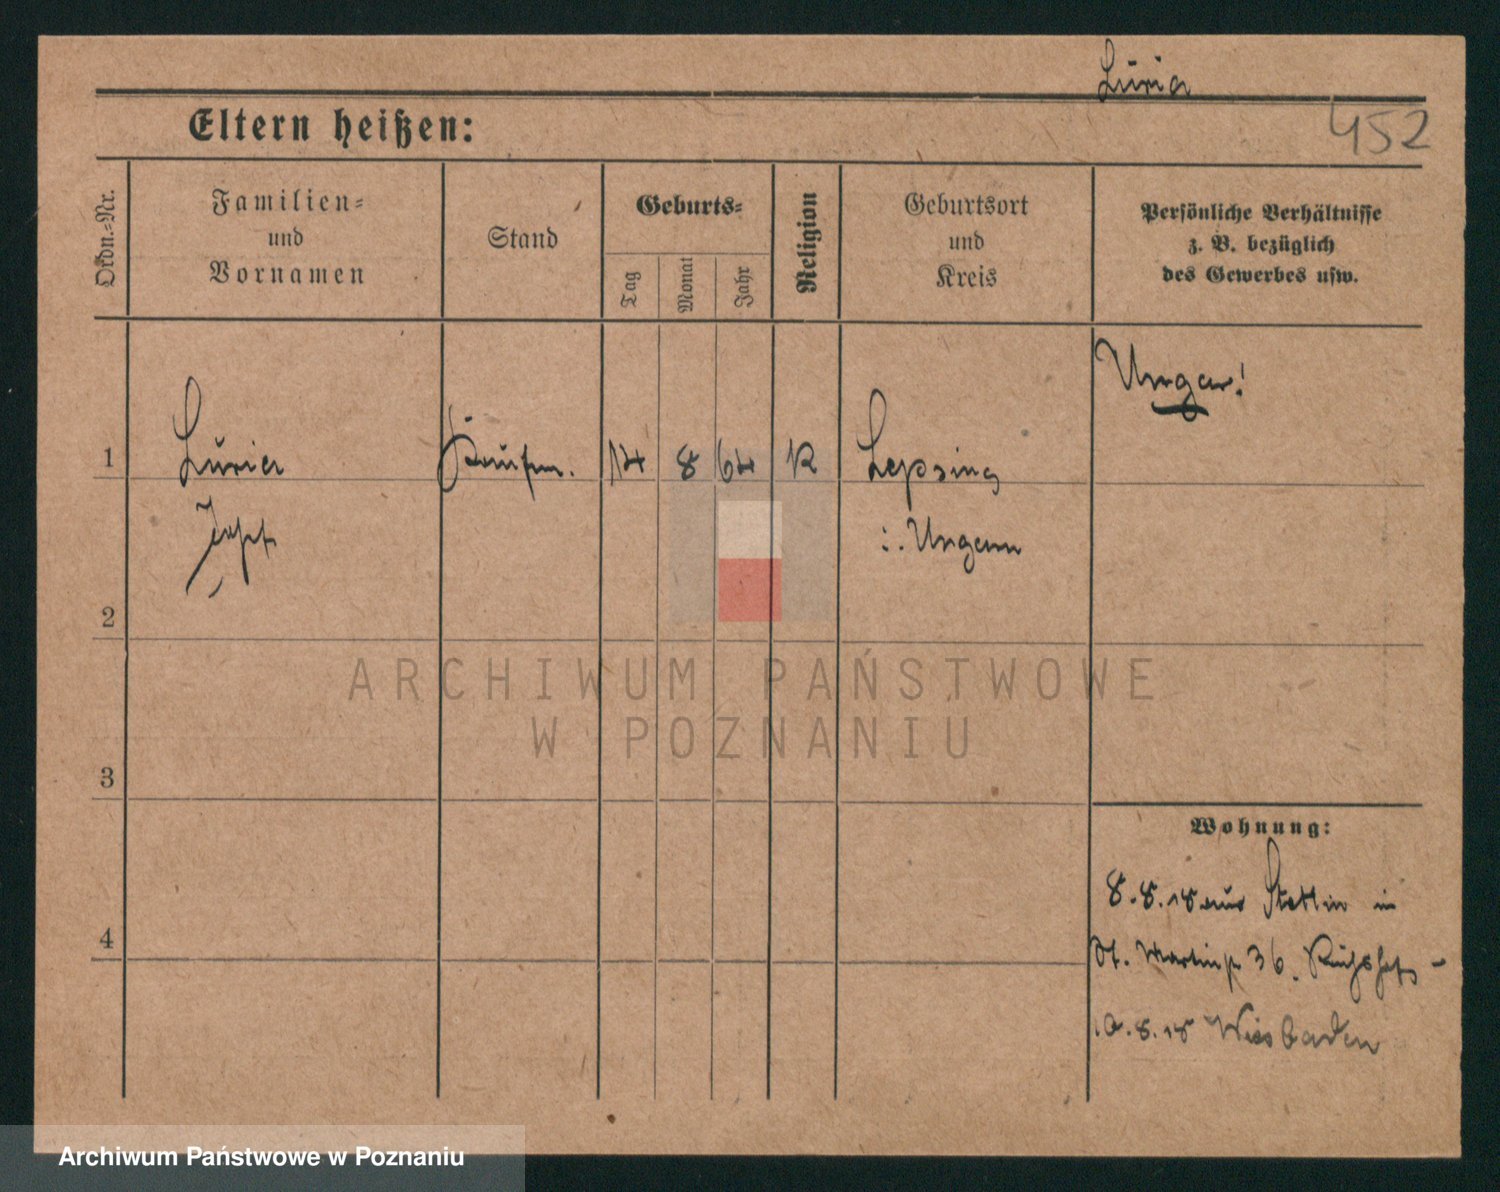 Luria
452
Eltern heißen:
Ordn.-Nr.
Familien-
und
Vornamen
Stand
Geburts-
Tag
Monat
Jahr
Religion
Geburtsort
und
Kreis
Persönliche Verhältnisse
z. B. bezüglich
des Gewerbes usw.
Ungar!
1
Luria
Kaufm.
14
8
64
Lepsing
i. Ungarn
2
ARCHIWUM PAŃSTWOWE
W POZNANIU
3
Wohnung:
8.8.18 aus Stettin in
St. Martinstr 36.
4
10.8.18 Wiesbaden
Archiwum Państwowe w Poznaniu